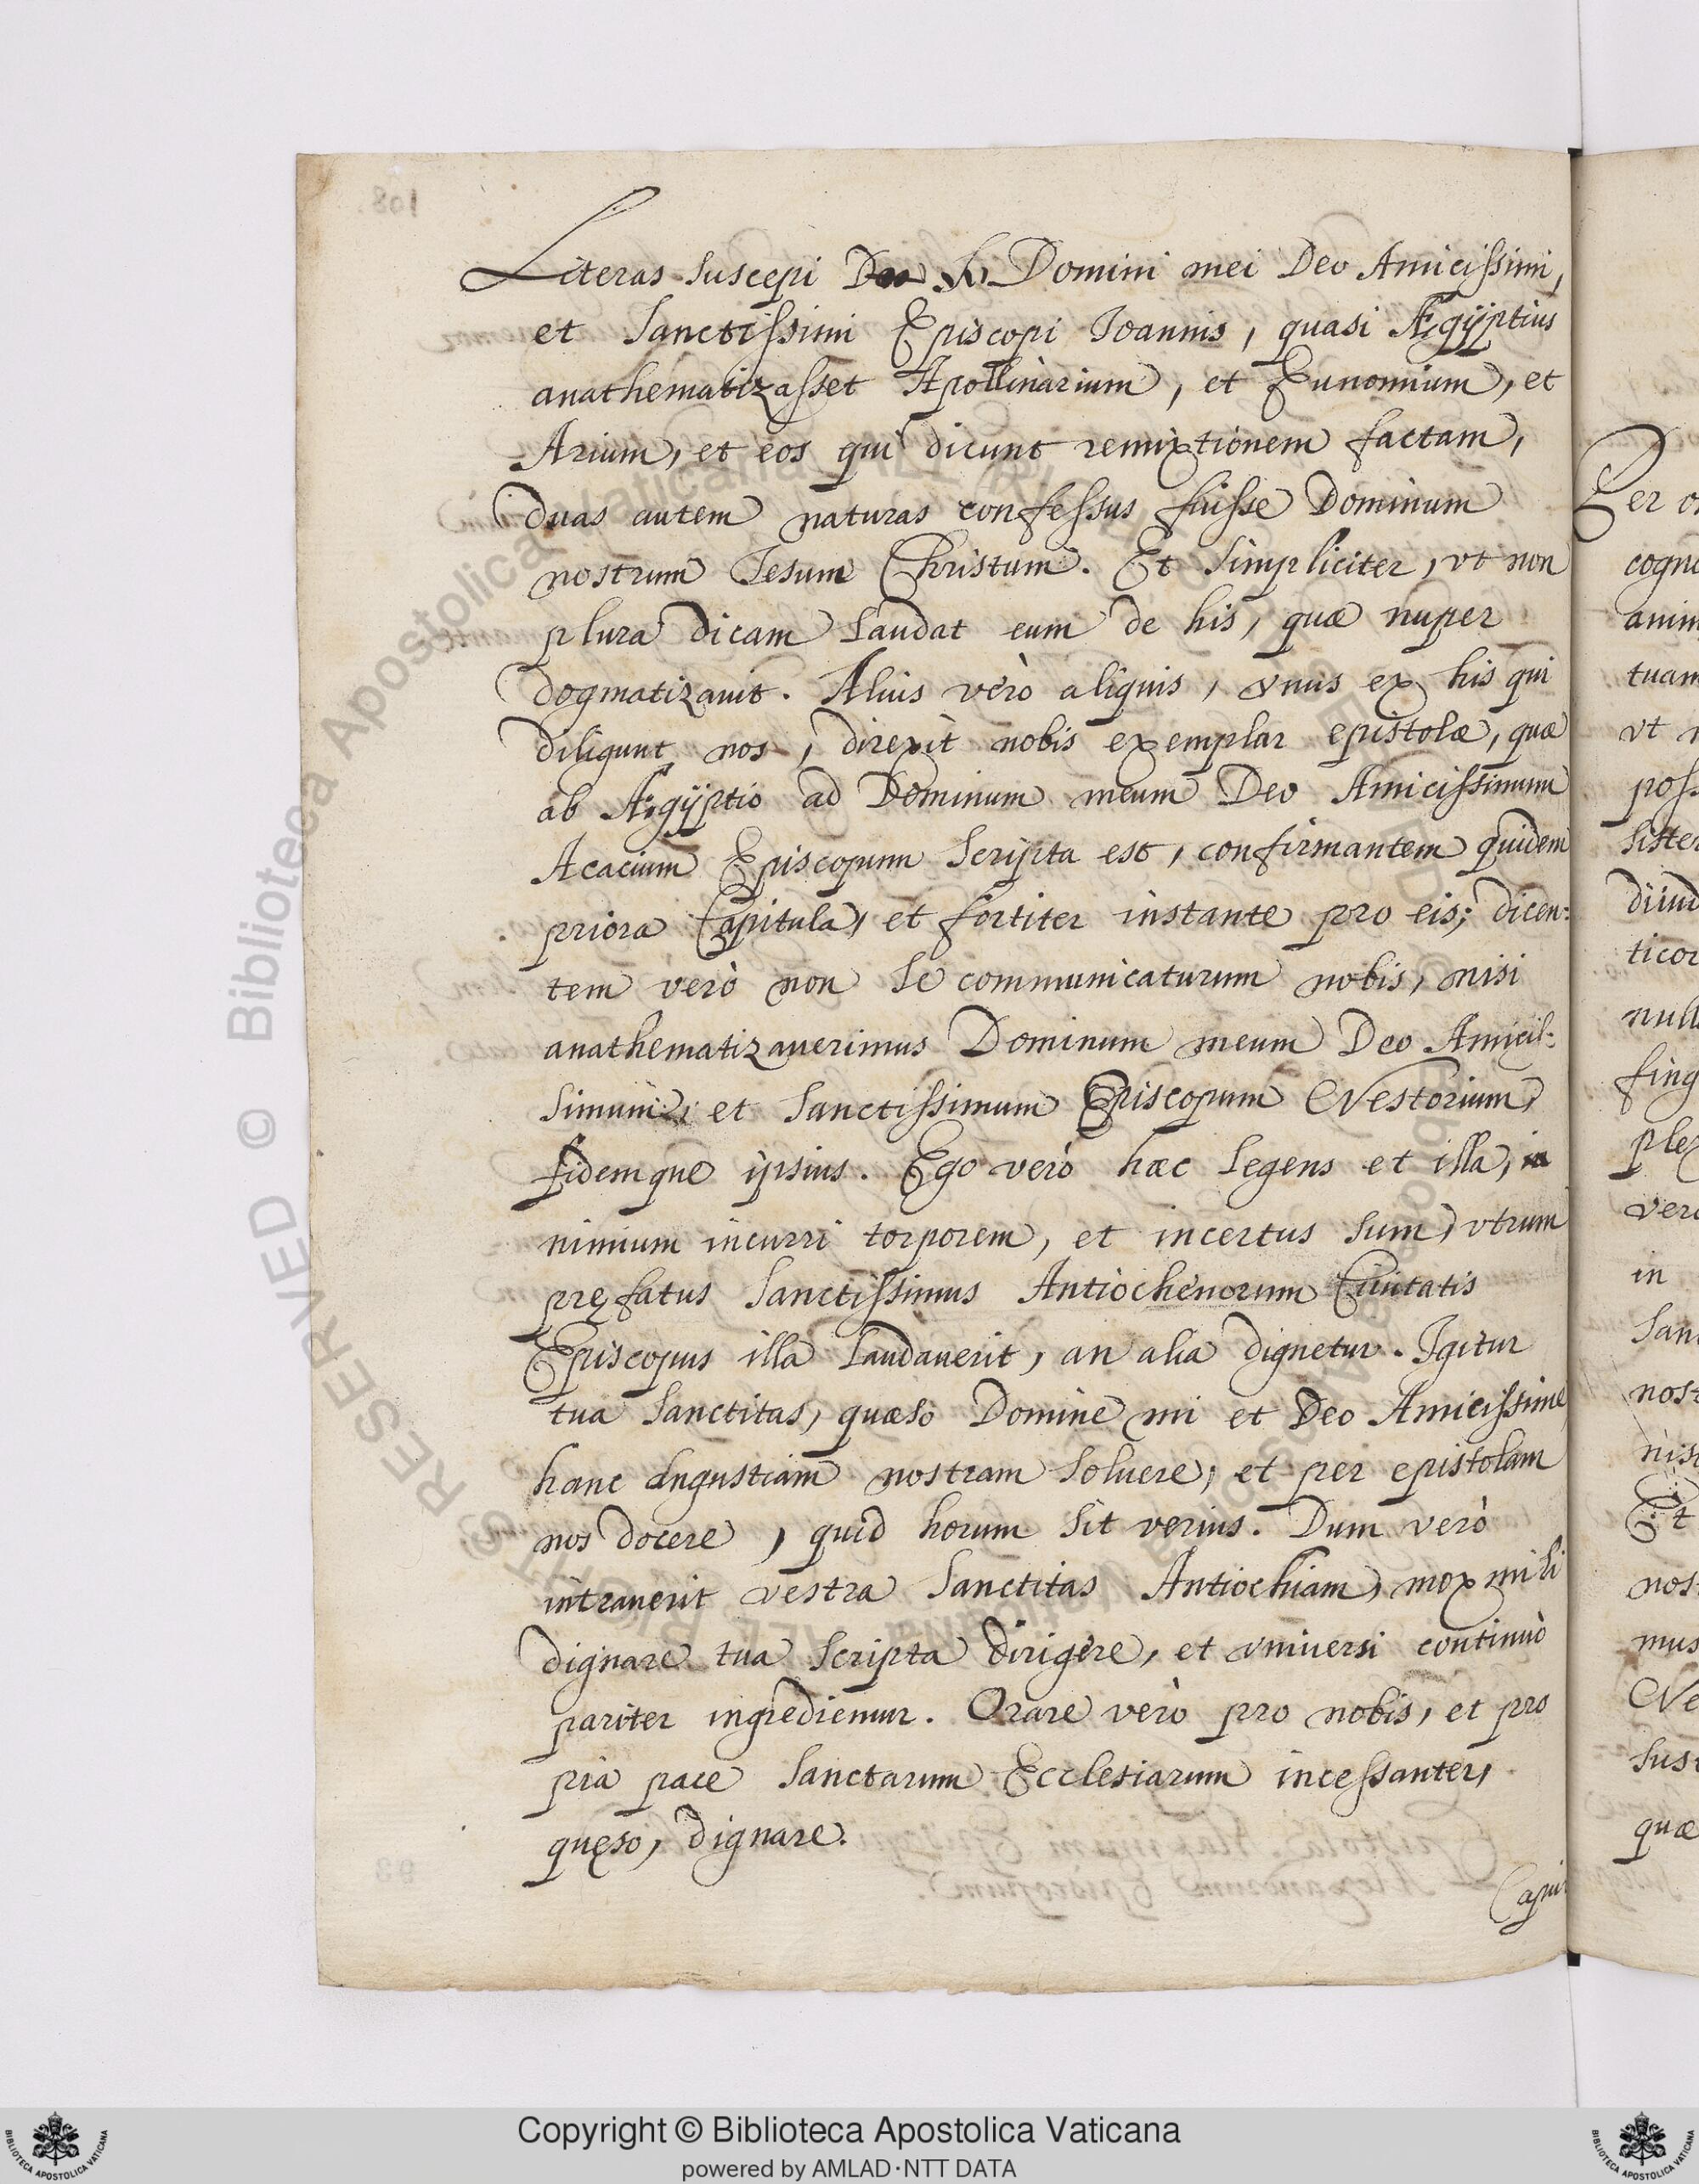 Literas suscepi Domini mei Deo Amicissimi,
et Sanctissimi Episcopi Ioannis, quasi Ægÿptius
anathematizasset Apollinarium, et Eunomium, et
Arium, et eos qui dicunt remixtionem factam,
duas autem naturas confessus fuisse Dominum
nostrum Iesum Christum. Et simpliciter, vt non
plura dicam laudat eum de his, quæ nuper
dogmatizauit. Alius verò aliquis, vnus ex his qui
diligunt nos, direxit nobis exemplar epistolæ, quæ
ab Ægÿptio ad Dominum meum Deo Amicissimum
Acacium Episcopum scripta est, confirmantem quidem
priora Capitula, et fortiter instante pro eis; dicen:
tem verò non se communicaturum nobis, nisi
anathematizauerimus Dominum meum Deo Amicis:
simum, et Sanctissimum Episcopum Nestorium,
fidemque ipsius. Ego verò hæc legens et illa, in
nimium incurri torporem, et incertus sum, vtrum
pręfatus Sanctissimus Antiochenorum Ciuitatis
Episcopus illa laudauerit, an alia dignetur. Igitur
tua Sanctitas, quæso Domine mi et Deo Amicissime
hanc angustiam nostram soluere, et per epistolam
nos docere, quid horum sit verius. Dum verò
intrauerit vestra Sanctitas Antiochiam, mox mihi
dignare tua scripta dirigere, et vniuersi continuò
pariter ingrediemur. Orare verò pro nobis, et pro
pia pace Sanctarum Ecclesiarum incessanter,
quęso, dignare.
108
98
Per
cogn
anim
tuam
vt
poss
sister
diiud
ticor
null
fing
plex
verò
in
San
nost
nisi
Et
nost
mus
Ne
sus
quæ
© Biblioteca Apostolica Vaticana ALL RIGHTS RESERVED
Copyright © Biblioteca Apostolica Vaticana
powered by AMLAD·NTT DATA
BIBLIOTECA APOSTOLICA VATICANA
BIBLIOTECA APOSTOLICA VATICANA